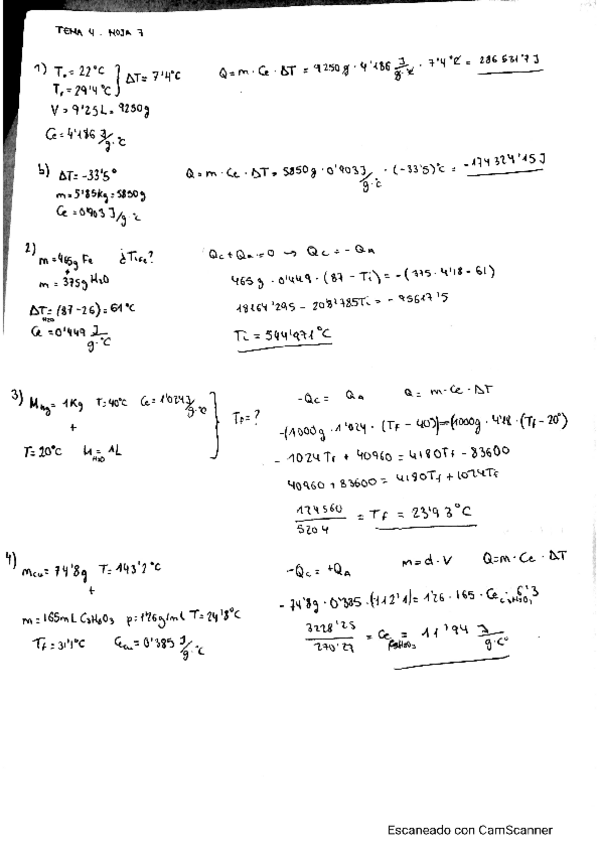 TEMA 4 . HOJA 7
1) T₀ = 22°C
Tf = 29'4°C } ΔT = 7'4°C
Q = m · Ce · ΔT = 9250g · 4'186 J/g·°C · 7'4°C = 286531'7 J
V = 9'25L = 9250g
Ce = 4'186 J/g·°C
b) ΔT = -33'5°
m = 5'85Kg = 5850g
Ce = 0'903 J/g·°C
Q = m · Ce · ΔT = 5850g · 0'903 J/g·°C · (-33'5)°C = -174324'15 J
2) m = 465g Fe ¿Ti Fe?
+
m = 375g H₂O
ΔT H₂O = (87-26) = 61°C
Ce = 0'449 J/g·°C
Qc + Qa = 0 → Qc = -Qa
465g · 0'449 · (87 - Ti) = -(375 · 4'18 · 61)
18164'295 - 208'785Ti = -95617'5
Ti = 544'971°C
3) M = 1Kg T = 40°C Ce = 1'024 J/g·°C
+
T = 20°C M H₂O = 1L
} Tf = ?
-Qc = Qa Q = m · Ce · ΔT
-(1000g · 1'024 · (Tf - 40)) = (1000g · 4'18 · (Tf - 20°)
- 1024Tf + 40960 = 4180Tf - 83600
40960 + 83600 = 4180Tf + 1024Tf
124560/5204 = Tf = 23'93°C
4) mcu = 74'8g T = 143'2°C
+
m = 165mL C₃H₈O₃ ρ = 1'26g/mL T = 24'8°C
Tf = 31'1°C Ce cu = 0'385 J/g·°C
-Qc = +Qa m = d · V Q = m · Ce · ΔT
- 74'8g · 0'385 · (112'1) = 1'26 · 165 · Ce C₃H₈O₃ · 6'3
3228'25/270'27 = Ce C₃H₈O₃ = 11'94 J/g·C°
Escaneado con CamScanner